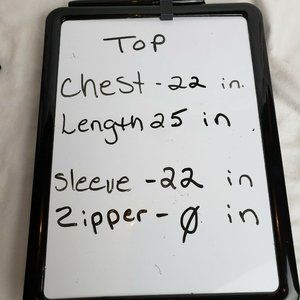 TOP
Chest - 22 in.
Length 25 in
Sleeve - 22 in
Zipper - Ø in